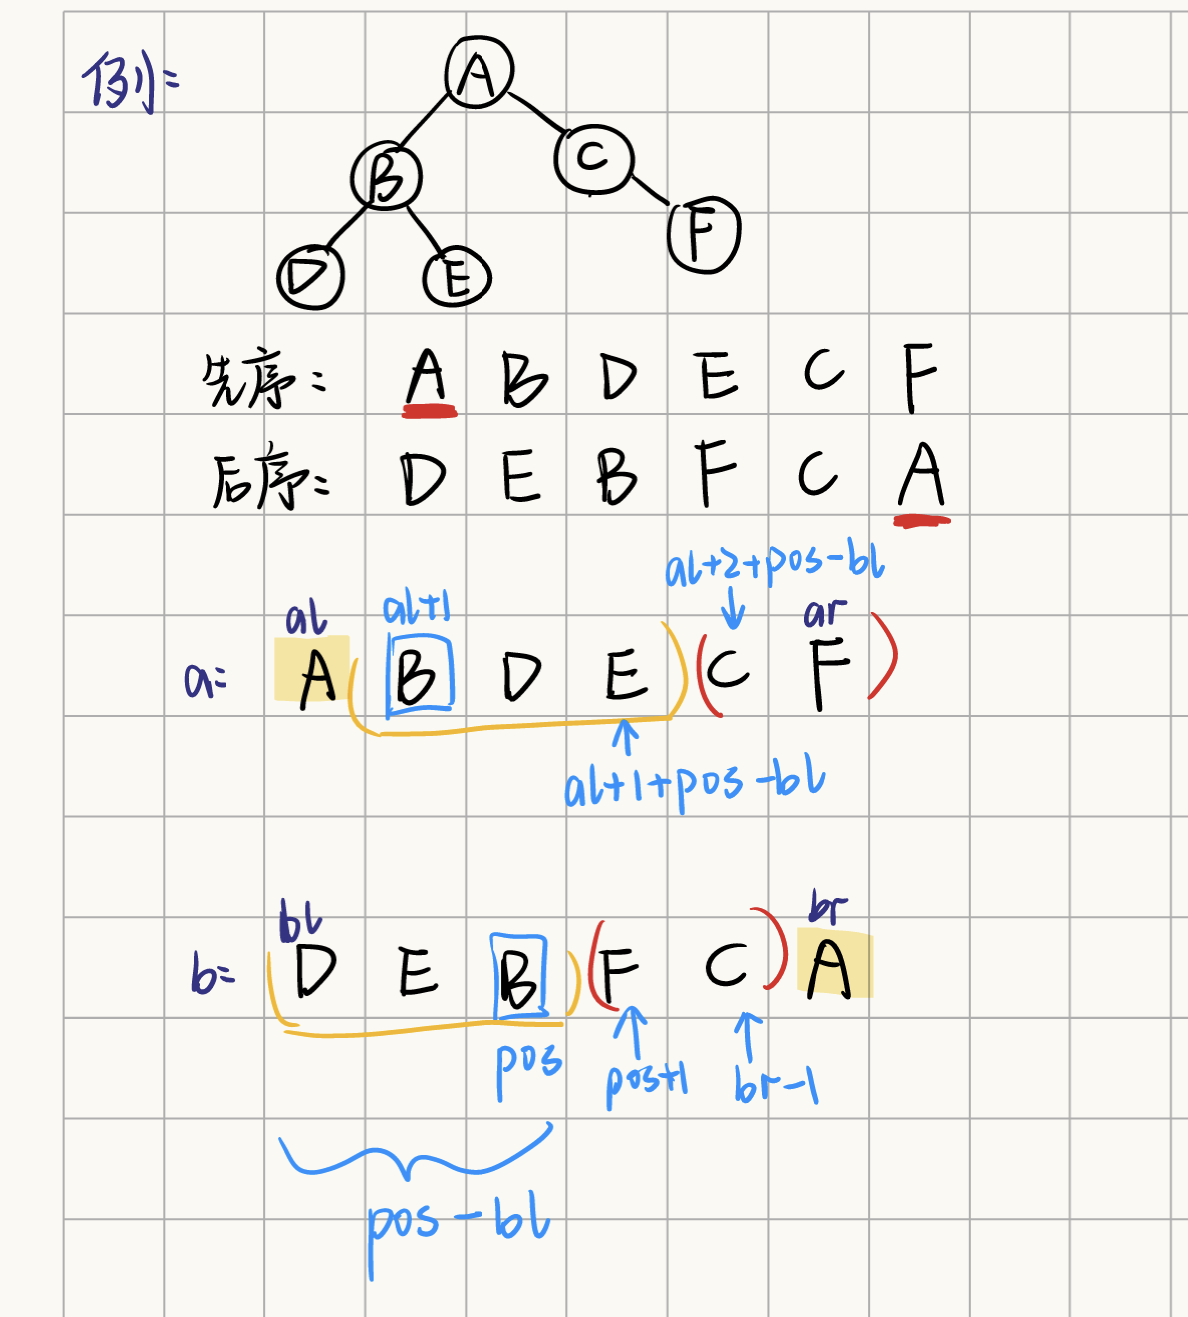 例:
A
B C
D E F
先序: A B D E C F
后序: D E B F C A
al+2+pos-bl
al al+1 ar
a: A ( B D E ) ( C F )
al+1+pos-bl
bl br
b: ( D E B ) ( F C ) A
pos pos+1 br-1
pos-bl